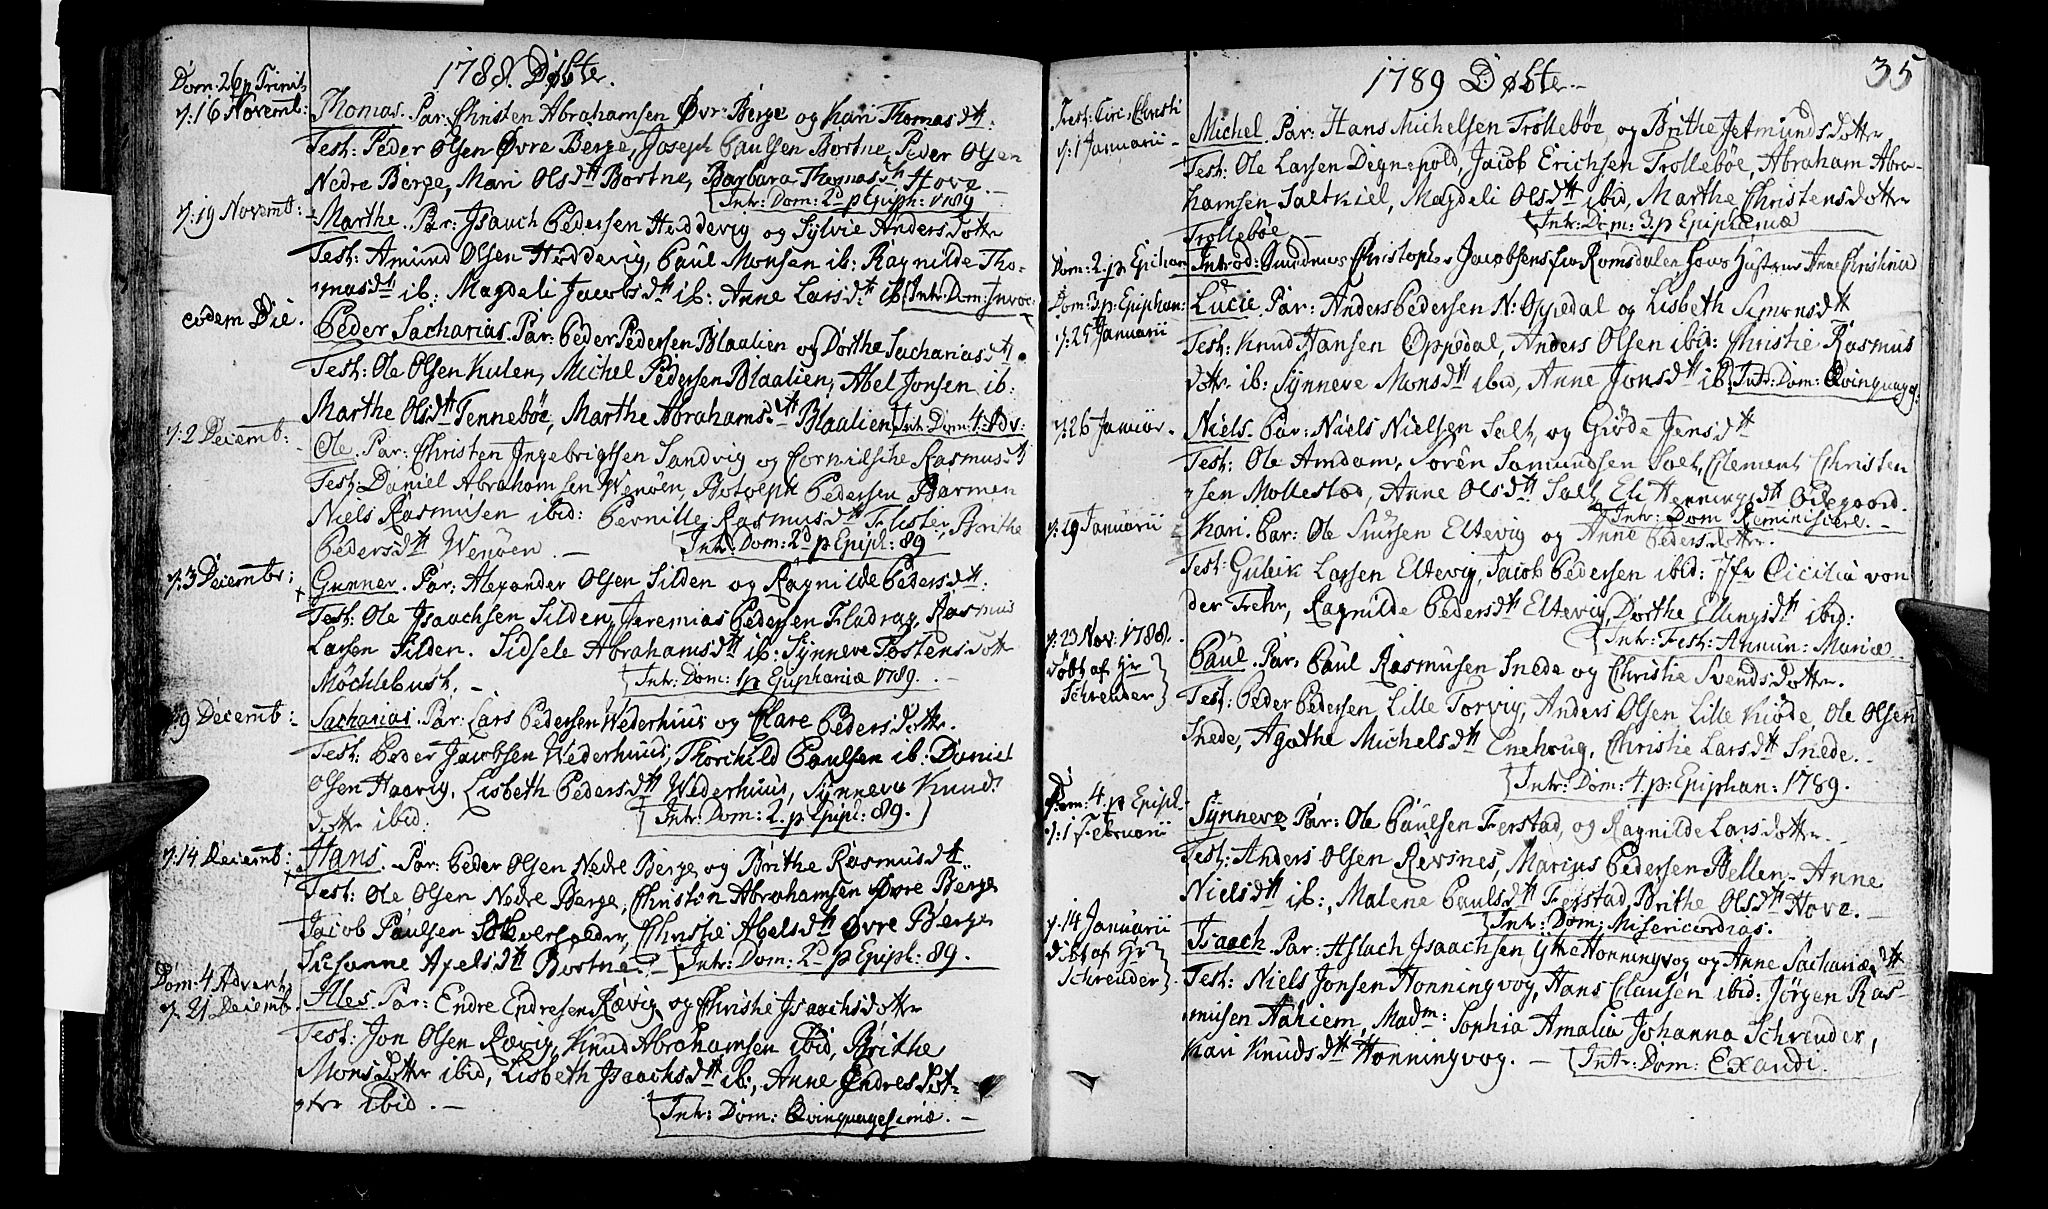 1788. Døbte.
Dom: 26 p Trinit:
d: 16 Novemb: Thomas. Par: Christen Abrahamsen Øvr: Berge og Kari Thomasdtt:
Test: Peder Olsen Øvre Berge, Joseph Paulsen Bortne, Peder Olsen
Nedre Berge, Mari Olsdtt Bortne, Barbara Thomasdtt Hove. —
Intr: Dom: 2d p Epiph: 1789
d: 19 Novemb: Marthe. Par: Isaach Pedersen Heddevig og Sylvie Andersdotte
Test: Amund Olsen Heddevig, Paul Monsen ib: Ragnilde Tho-
masdtt ib: Magdeli Jacobsdtt ib: Anne Larsdtt ib Intr: Dom: Invoc:
eodem Die. Peder Sacharias. Par: Peder Pedersen Blaalien og Dorthe Sachariasdtt.
Test: Ole Olsen Kulen, Michel Pedersen Blaalien, Abel Jonsen ib:
Marthe Olsdtt Tennebøe, Marthe Abrahamsdtt Blaalien Intr: Dom: 4: Adv:
d: 2 Decemb: Ole. Par: Christen Ingebrigtsen Sandvig og Cornilsche Rasmusdtt
Test: Daniel Abrahamsen Wenøen, Botolph Pedersen Barmen
Niels Rasmusen ibid: Pernille Rasmusdtt Flister, Brithe
Pedersdtt Wenøen. — Intr: Dom: 2d p Epiph: 89
d: 3 Decembr: Gunner. Par: Alexander Olsen Silden og Ragnilde Pedersdtt:
Test: Ole Isaachsen Silden, Jeremias Pedersen Fladrag, Rasmus
Larsen Silden. Sidsele Abrahamsdtt ib: Synneve Tostensdotte
Møchlebust. — Intr: Dom: 1 p Epiphaniæ 1789. —
d: 9 Decemb: Sacharias. Par: Lars Pedersen Wederhuus og Clare Pedersdotte.
Test: Peder Jacobsen Wederhuus, Thorchild Paulsen ib: Daniel
Olsen Haavig, Lisbeth Pedersdtt Wederhuus, Synneve Knuds
dotte ibid. Intr: Dom: 2. p Epiph: 89.
d: 14 Decemb: Hans. Par: Peder Olsen Nedre Berge og Brithe Rasmusdtt.
Test: Ole Olsen Nedre Berge, Christen Abrahamsen Øvre Berge
Jacob Paulsen Christie Abelsdtt Øvre Berge
Susanne Axelsdtt Bortne. — Intr: Dom: 2d p Epiph: 89.
Dom: 4 Advent:
d. 21 Decemb. Illes. Par: Endre Endresen Rævig og Christie Isaachsdotte
Test: Jon Olsen Rævig, Knud Abrahamsen ibid, Brithe
Monsdotte ibid, Lisbeth Isaachsdtt ib:, Anne Endresdot-
ter ibid. — Intr: Dom: Qvinquagesimæ. —
1789 Døbte. — 35
Fest: Circ: Christi
d: 1 Januarii — Michel. Par: Hans Michelsen Trollebøe og Brithe Jetmundsdotte
Test: Ole Larsen Degnepold, Jacob Erichsen Trollebøe, Abraham Abra-
hamsen Saltkiel, Magdeli Olsdtt ibid, Marthe Christensdotte
Trollebøe — Intr: Dom: 3. p Epiphaniæ
Dom: 2. p Epiphan Introd: Christopher Jacobsens fra Romsdalen hans Hustrue Anne Christina
Dom: 3 p: Epiphan:
d: 25 Januarii Lucie. Par: Anders Pedersen N: Oppedal og Lisbeth Simonsdtt
Test: Knud Hansen Oppedal, Anders Olsen ibid: Christie Rasmus
dotte ib: Synneve Monsdtt ibid, Anne Jonsdtt ib. Intr: Dom: Qvinquag:
d: 26 Januar. Niels. Par: Niels Nielsen Salt, og Giøde Jensdtt
Test: Ole Amdam, Søren Samundsen Salt, Clement Christen
sen Mollestad, Anne Olsdtt Salt, Eli Henningsdtt Ødegaard.
Intr: Dom Reminiscere. —
d: 19 Januarii Kari. Par: Ole Siursen Eltevig og Anne Pedersdotte.
Test: Guleik Larsen Eltevig, Jacob Pedersen ibid: Jfr Cicilia von
der Fehr, Ragnilde Pedersdtt Eltevig, Dorthe Ellingsdtt ibid:
Intr: Fest: Annun: Mariæ
d: 23 Nov: 1788.
døbt af Hr
Schreuder Paul. Par: Paul Rasmusen Snede og Christie Svendsdotte.
Test: Peder Pedersen Lille Torvig, Anders Olsen Lille Kiøde, Ole Olsen
Snede, Agathe Michelsdtt Enehoug, Christie Larsdtt Snede. —
Intr: Dom: 4. p: Epiphan: 1789.
Dom: 4. p Epiph:
d: 1 Februarii Synneve. Par: Ole Paulsen Ferstad, og Ragnilde Larsdotte
Test: Anders Olsen Revsnes, Marius Pedersen Hellen, Anne
Nielsdtt ib:, Malene Paulsdtt Ferstad, Brithe Olsdtt Hove. —
Intr: Dom: Misericordias.
d. 14 Januarii
døbt af Hr
Schreuder Isaach. Par: Aslach Isaachsen Ytre Honningvog og Anne Sachariædtt
Test: Niels Jonsen Honningvog, Hans Clausen ibid: Jørgen Ras-
musen Aahiem, Madm: Sophia Amalia Johanna Schreuder,
Kari Knudsdtt Honningvog. — Intr: Dom: Exaudi.